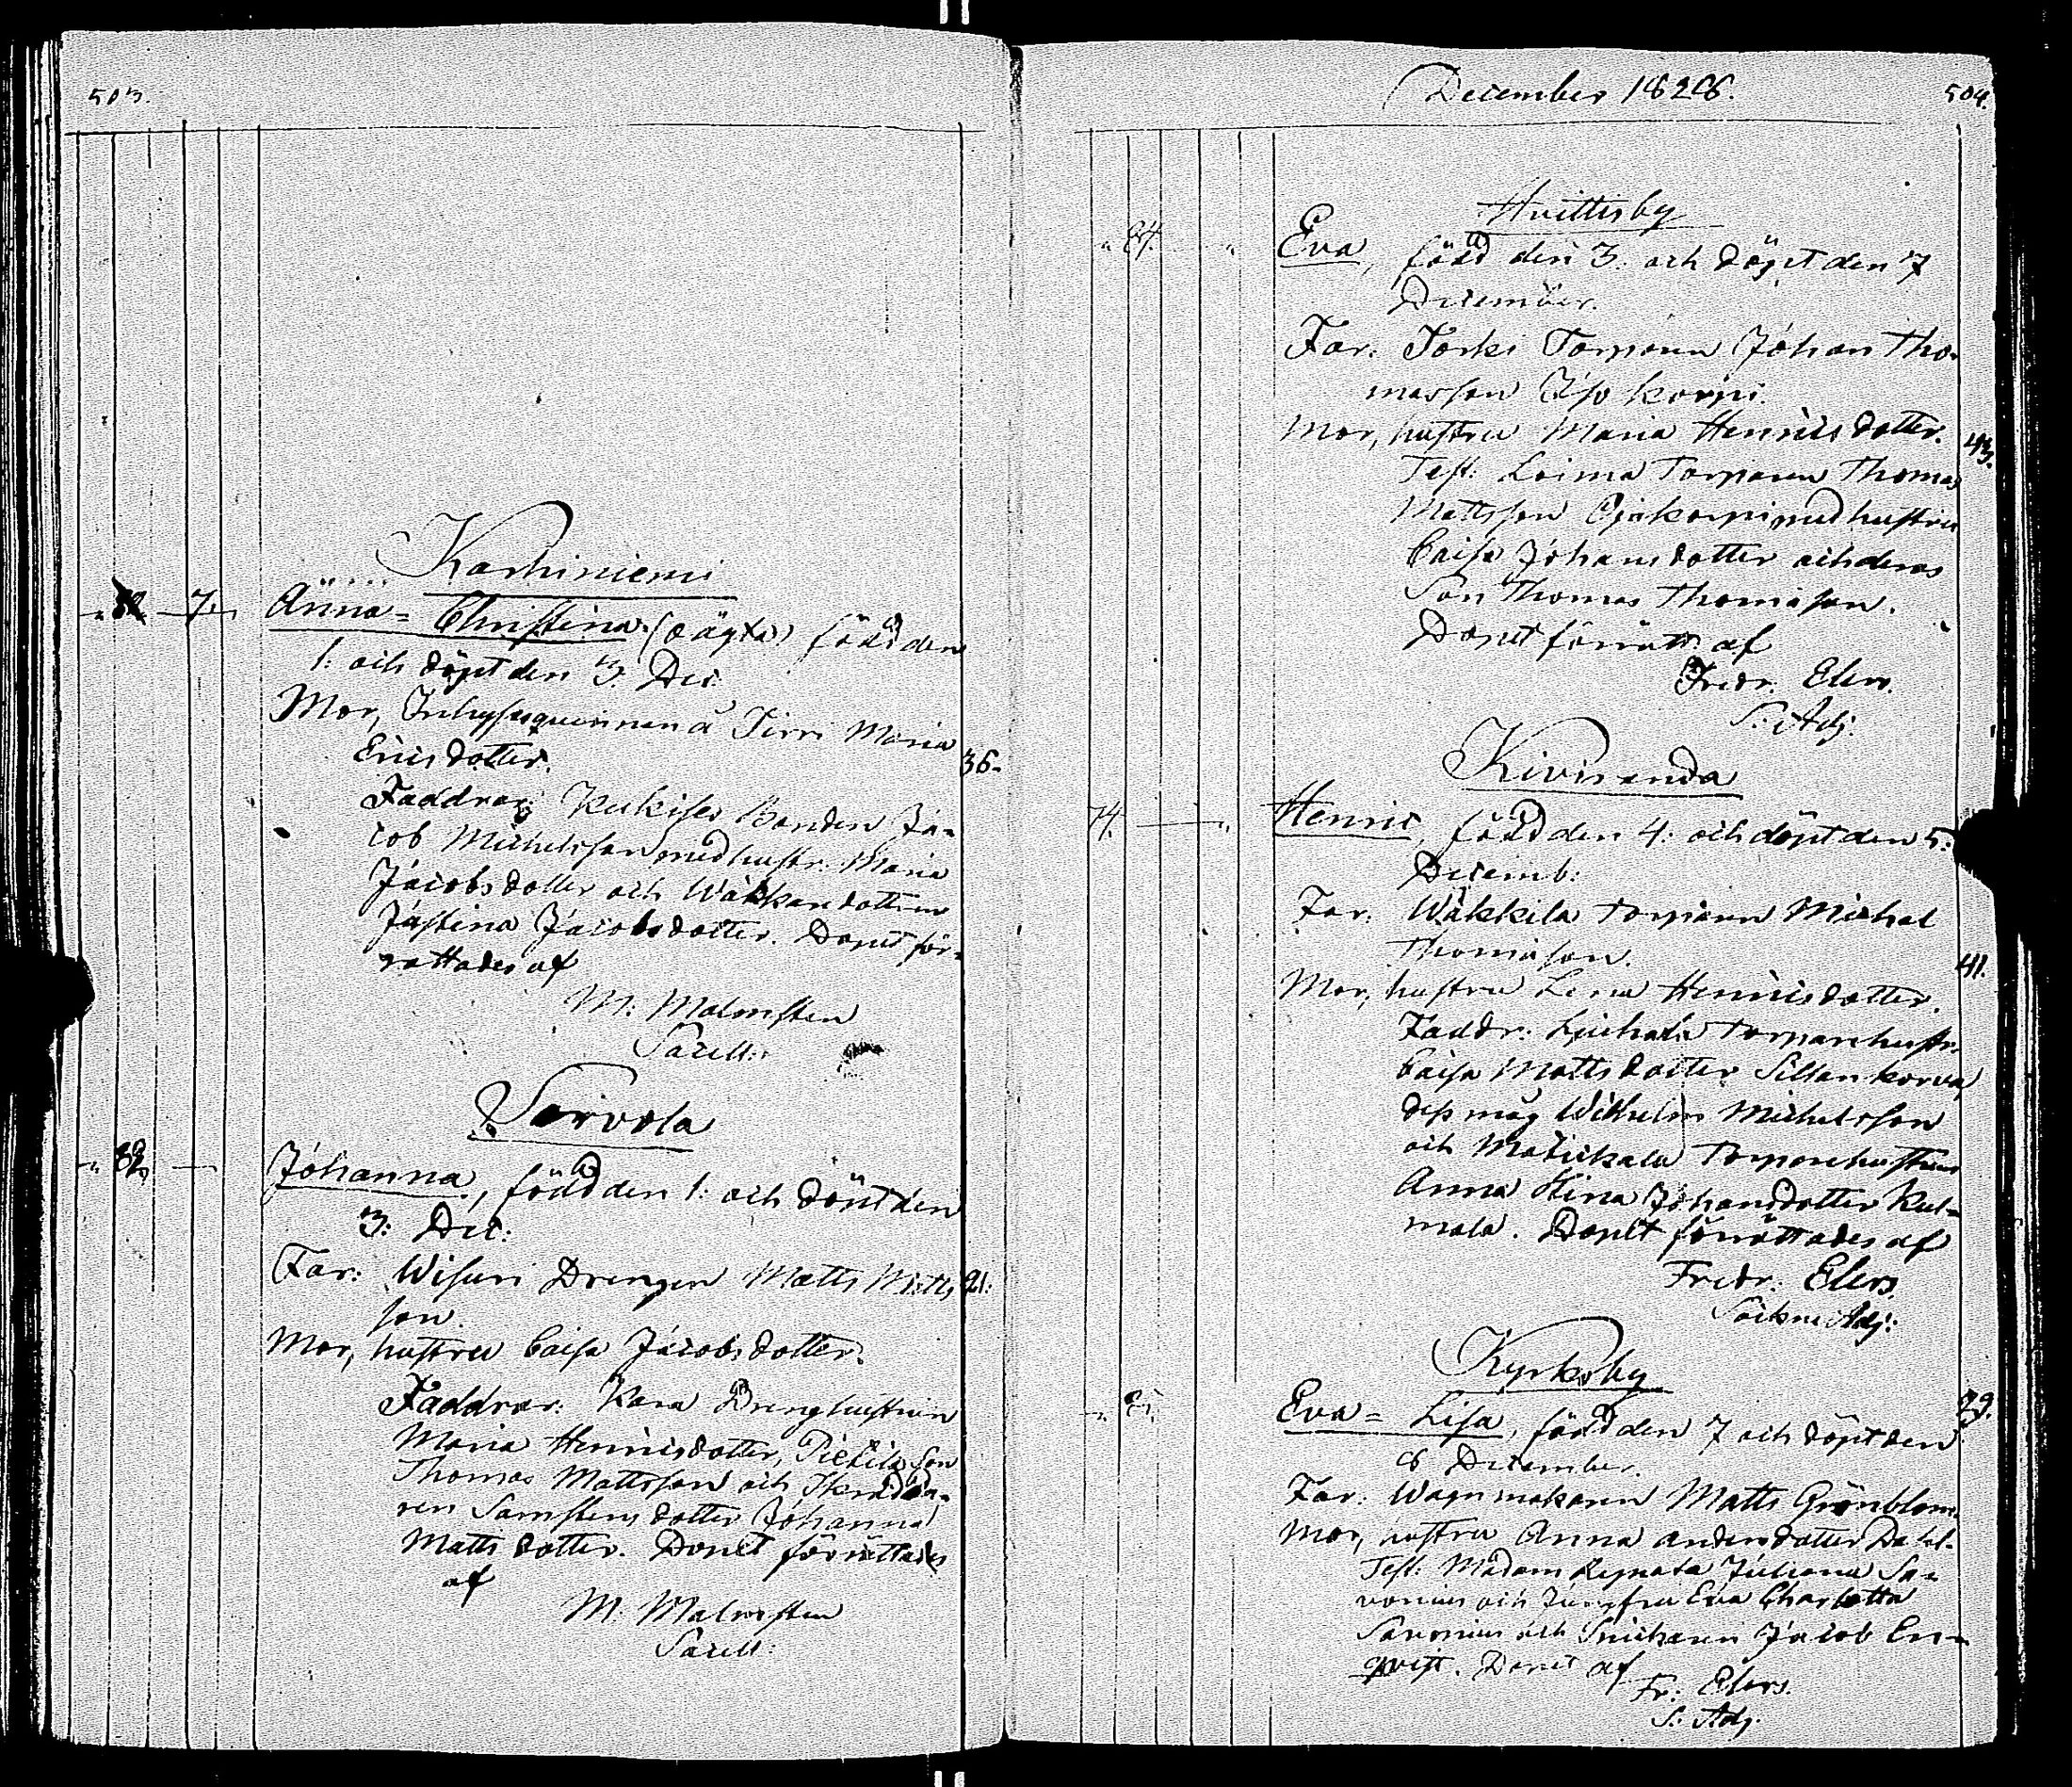 503.
Karhiniemi
7. Anna= Christina (oägta) född den
1: och döpt den 3. Dec:
Mor, Inhysesquinnan å Pirri Maria
Ericsdotter. 36.
Faddrar: Kukises Bonden Ja-
cob Michelsson med hustr. Maria
Jacobsdotter och
Justina Jacobsdotter. Dopet för-
rättades af
M: Malmsten
Sacell:
Sorvola
82. Johanna, född den 1: och döpt den
3: Dec:
Far: Wisuri Drengen Matts Matts 21.
son.
Mor, hustru Caisa Jacobsdotter.
Faddrar: Kara Dreng hustrun
Maria Henricsdotter, Pietilä Son
Thomas Mattsson och Skrädda-
ren Samstens dotter Johanna
Matts dotter. Dopet förrättades
af
M: Malmsten
Sacell:
December 1828. 504.
Hvittisby
84. Eva, född den 3: och döpt den 7
December.
Far: Torparen Johan Tho-
masson Iso korpi.
Mor, hustru Maria Henricsdotter. 43.
Test: Loima Torparen Thomas
Mattsson Ojakorpi med hustru
Caisa Johansdotter och deras
Son Thomas Thomasson.
Dopet förrätt: af
Fredr. Elers.
S: Adj:
Kiviranda
74. Henric, född den 4: och döpt den 5:
Decemb:
Far: Wäkkilä torparen Michel
Thomasson. 41.
Mor, hustru Lena Henricsdotter.
Faddr: Torpare hustr.
Caisa Mattsdotter Sillankorva
dess måg Wilhelm Michelsson
och Torpare hustrun
Anna Stina Johansdotter Kul-
mala. Dopet förrättades af
Fredr: Elers.
Sockne Adj:
Kyrkoby
Eva= Lisa, född den 7 och döpt den 29.
8 December.
Far: Wagnmakaren Matts Grönblom.
Mor, hustru Anna Andersdotter Dahl-
Test: Madam Renata Juliana Sa-
vonius och Jungfru Eva Charlotta
Savonius och Snickaren Jacob En-
qvist. Dopet af
Fr: Elers.
S: Adj.